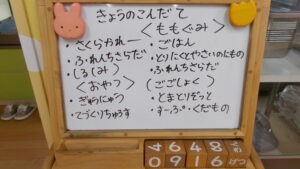 きょうのこんだて
<ももぐみ>
・さくらかれー
・ふれんちさらだ
・(しるみ)
<おやつ>
・ぎゅうにゅう
・てづくりちゅろす
・ごはん
・とりにくとやさいのにもの
・ふれんちさらだ
(ごごしょく)
・とまとりぞっと
・すーぷ・くだもの
4 6 4 8
0 9 1 6 げつ